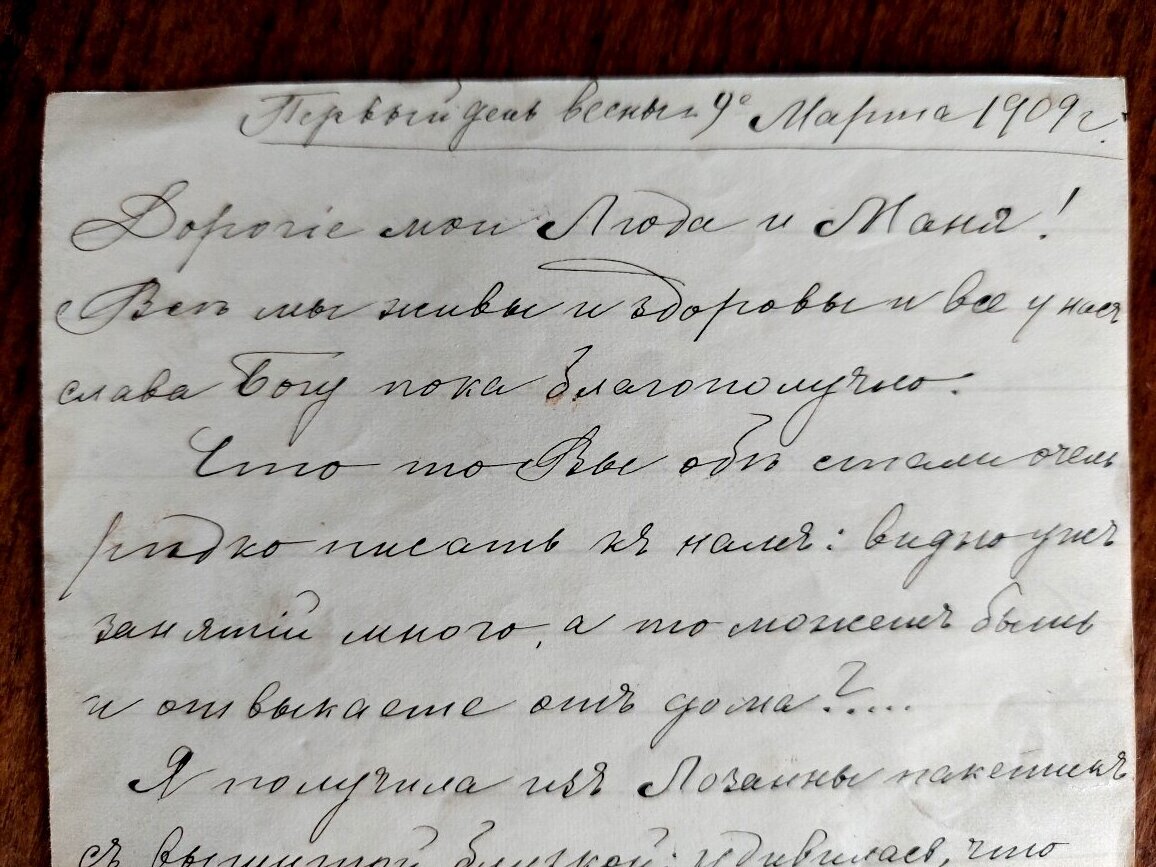 Первый день весны 9º Марта 1909 г.
Дорогіе мои Люда и Маня!
Всѣ мы живы и здоровы и все у насъ
слава Богу пока благополучно.
Что то Вы обѣ стали очень
рѣдко писать къ намъ: видно ужъ
занятій много, а то можетъ быть
и отвыкаете отъ дома?.....
Я получила изъ Лозанны пакетикъ
съ вышитой блузкой; удивилась, что